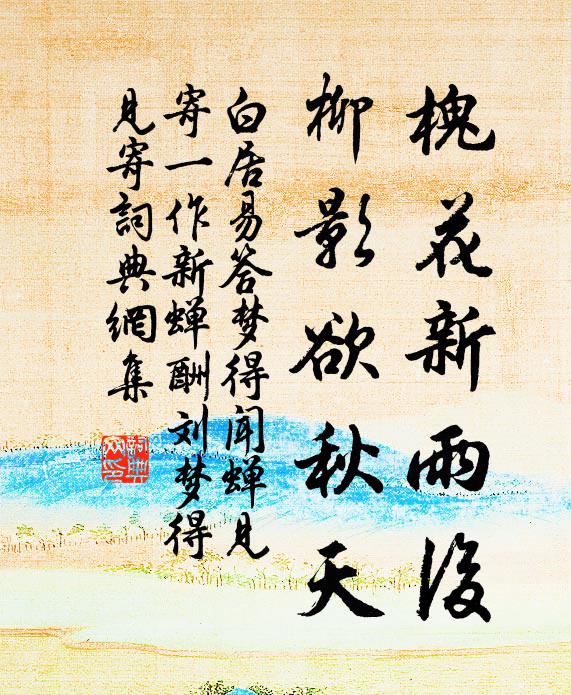 槐花新雨後
柳影欲秋天
白居易答梦得闻蝉见
寄一作新蝉酬刘梦得
見寄詞典網集